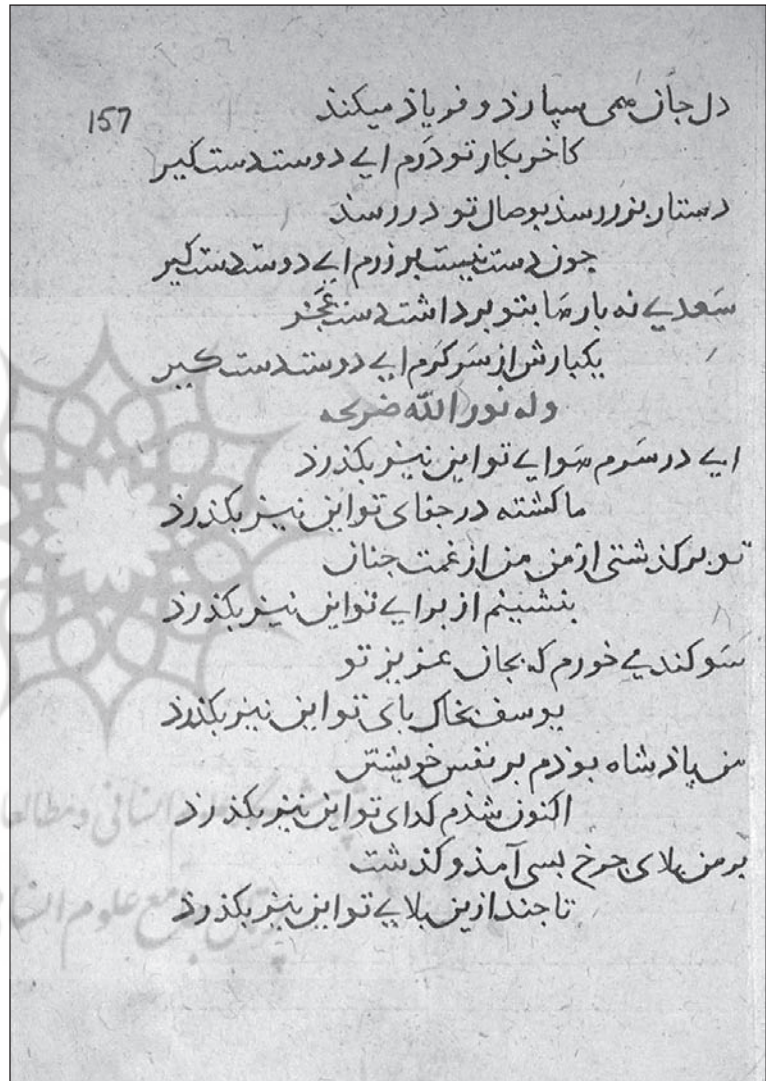 157
دل جان همی سپارذ و فریاذ میکند
کاخر بکار تو دَرم ایے دوست دست کیر
دستار بزر رسد بوصال تو در رسد
جون دست نیست بر زرم ایے دوست دست کیر
سَعدیے نه بارها بتو برداشت دست عَجز
یکبارش از سَر کَرم ایے دوست دست کیر
وله نور الله ضریحه
ایے در سَرم هَوایے تو این نیز بکذرذ
ما کشته در جفای تو این نیز بکذرذ
تو بر کذشتی از من من از غمت جنان
بنشینم از برایے تو این نیز بکذرذ
سَوکند میے خورم که بجان عزیز تو
یوسف بخاک بای تو این نیز بکذرذ
من پاذشاه بوذم بر نفس خویشتن
اکنون شذم کدای تو این نیز بکذرذ
بر من بلای جرخ بسی آمذ و کذشت
تا جند ازین بلایے تو این نیز بکذرذ